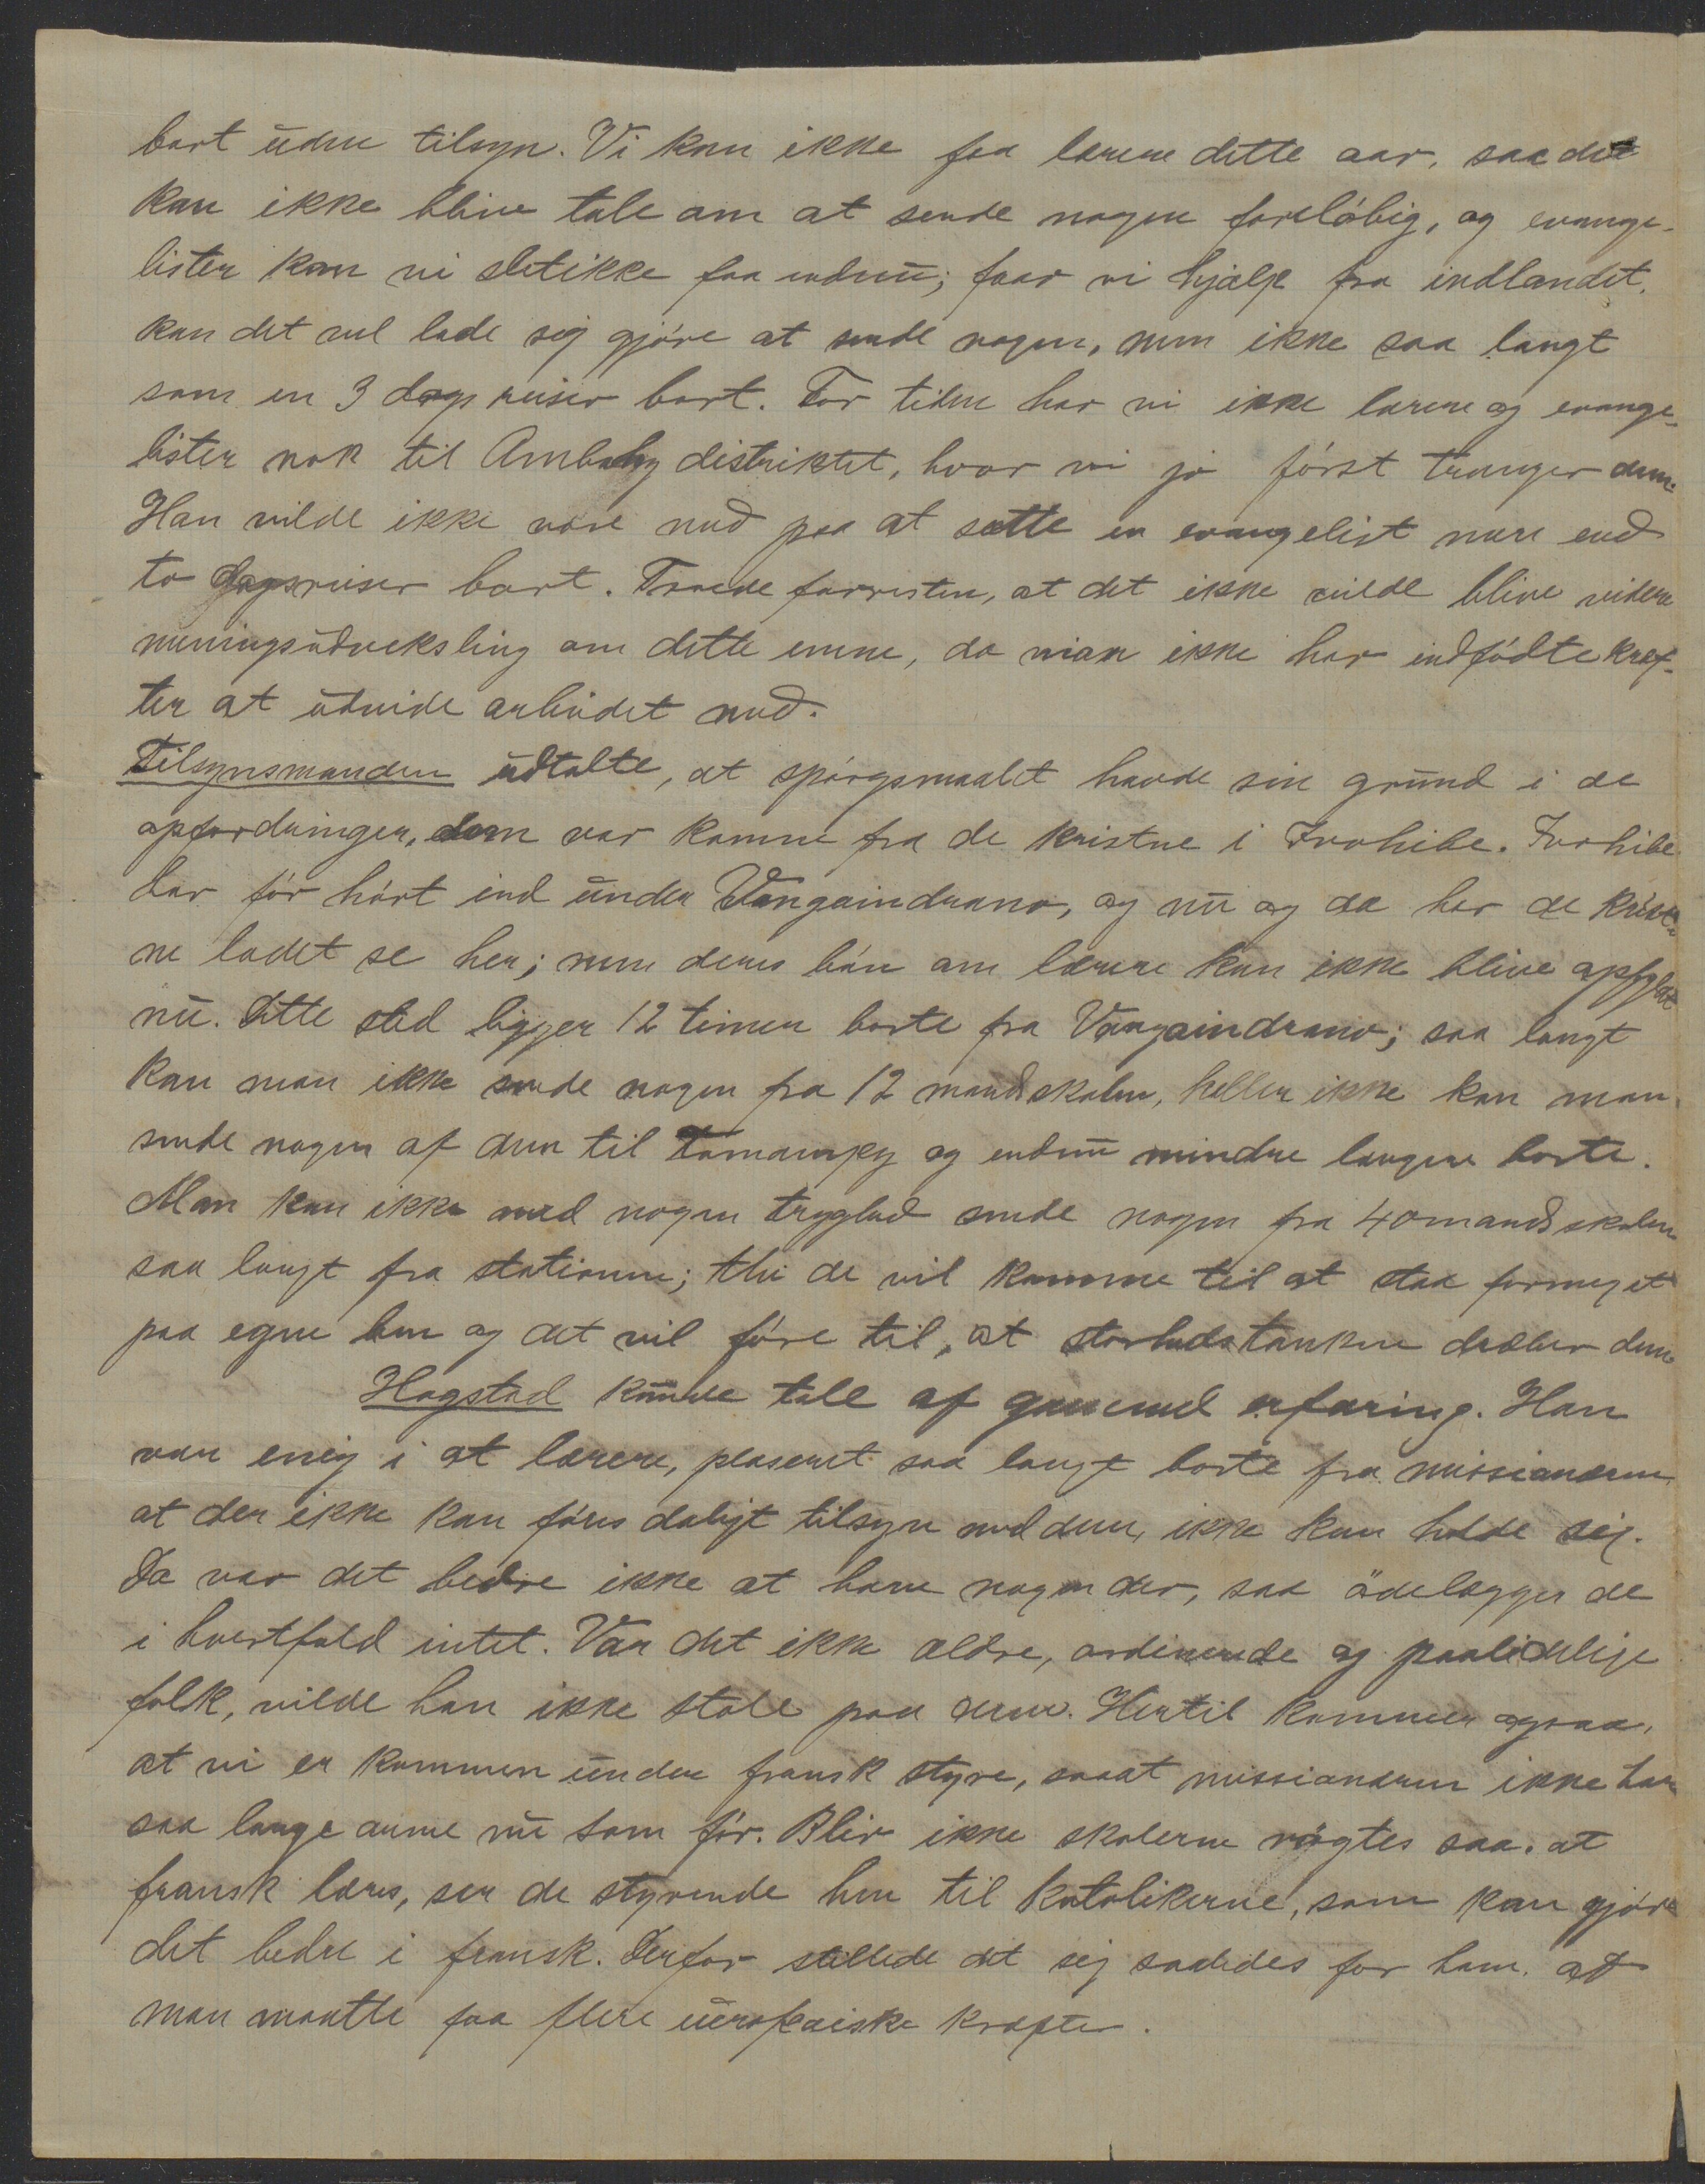 bort uden tilsyn. Vi kan ikke faa lærere dette aar, saa det
kan ikke blive tale om at sende nogen foreløbig, og evange-
lister kan vi sletikke faa endnu; faar vi hjælp fra indlandet,
kan det vel lade sig gjøre at sende nogen, men ikke saa langt
som en 3 dags reiser bort. For tiden har vi ikke lærere og evange-
lister nok til Ambahy distriktet, hvor vi jo først trænger dem.
Han vilde ikke være med paa at sætte en evangelist mere end
to dagsreiser bort. Troede forresten, at det ikke vilde blive videre
meningsudveksling om dette emne, da man ikke har indfødte kræf-
ter at udvide arbeidet med.
Tilsynsmanden udtalte, at spørgsmaalet havde sin grund i de
opfordringer, som var komne fra de kristne i Ivohibe. Ivohibe
har før hørt ind under Vangaindrano, og nu og da har de krist-
ne ladet se her; men deres bøn om lærere kan ikke blive opfyldt
nu. Dette sted ligger 12 timer borte fra Vangaindrano; saa langt
kan man ikke sende nogen fra 12 mandsskolen, heller ikke kan man
sende nogen af dem til Tamampy og endnu mindre længere borte.
Man kan ikke med nogen tryghed sende nogen fra 40 mandsskolen
saa langt fra stationen; thi de vil komme til at staa formeget
paa egne ben og det vil føre til, at storhedstanken dræber dem.
Hogstad kunde tale af gammel erfaring. Han
var enig i at lærere, plaseret saa langt borte fra missionæren,
at der ikke kan føres daligt tilsyn med dem, ikke kan holde sig.
Da var det bedre ikke at have nogen der, saa ödelægger de
i hvertfald intet. Var det ikke ældre, ordinerede og paalidelige
folk, vilde han ikke stole paa dem. Hertil kommer ogsaa,
at vi er kommen under fransk styre, saaat missionæren ikke har
saa lange arme nu som før. Blir ikke skolerne røgtes saa, at
fransk læres, ser de styrende hen til katolikerne, som kan gjøre
det bedre i fransk. Derfor stillede det sig saaledes for ham, at
man maatte faa flere europæiske kræfter.